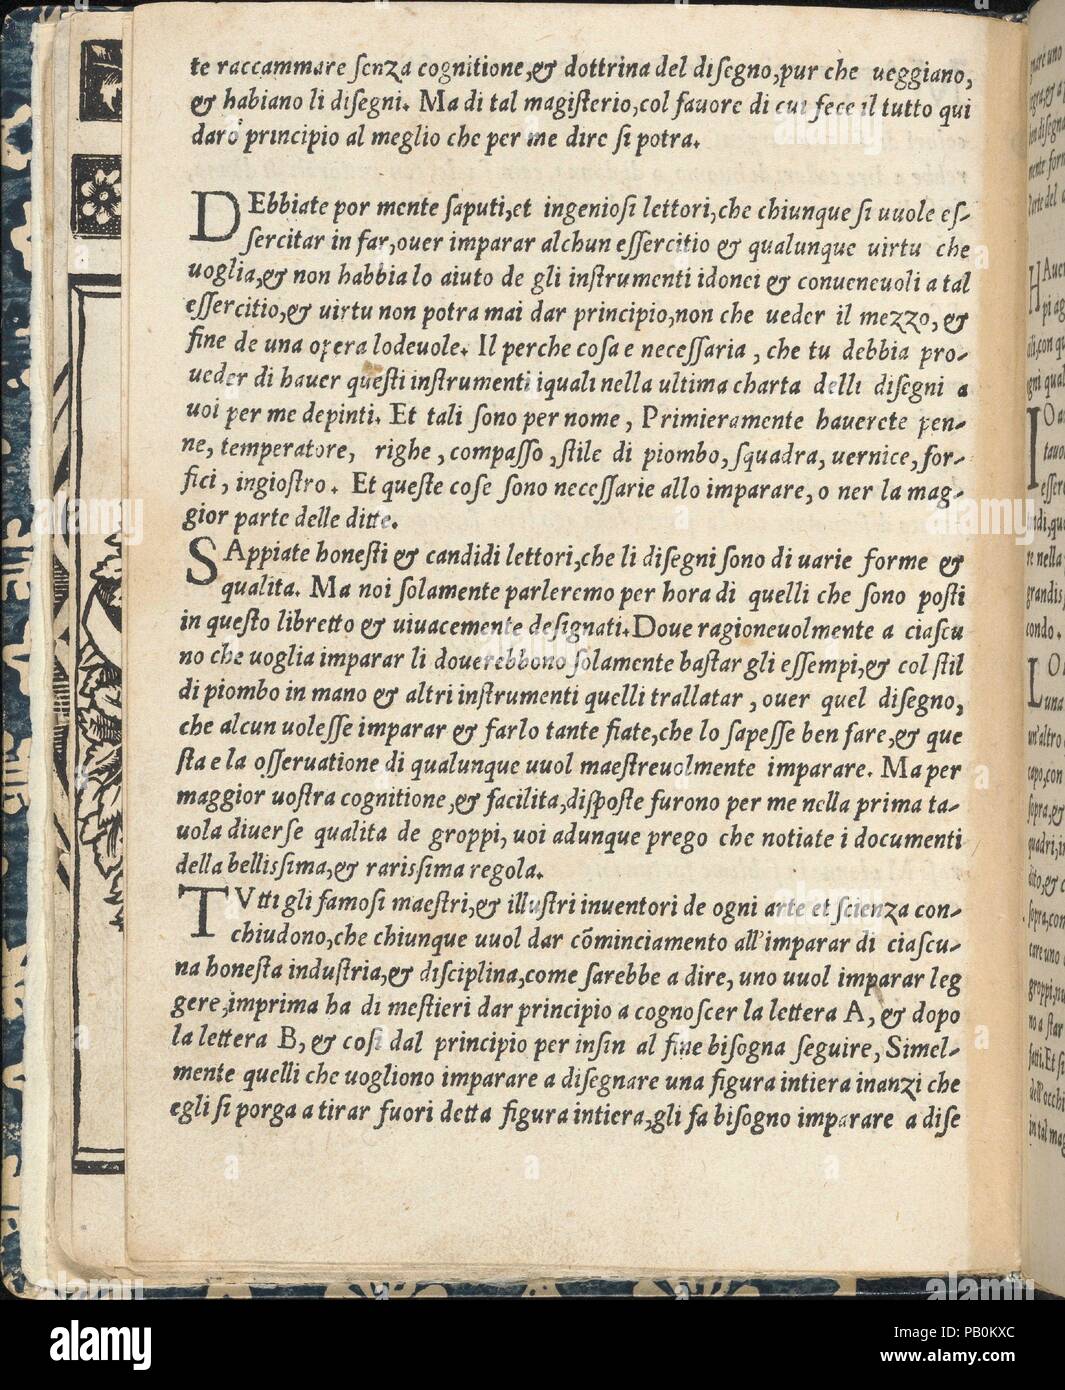 te raccammare ſenza cognitione,& dottrina del diſegno,pur che ueggiano,
& habiano li diſegni. Ma di tal magiſterio,col fauore di cui fece il tutto qui
daro principio al meglio che per me dire ſi potra.
DEbbiate por mente ſaputi,et ingenioſi lettori,che chiunque ſi uuole eſ-
ſercitar in far,ouer imparar alchun eſſercitio & qualunque uirtu che
uoglia,& non habbia lo aiuto de gli inſtrumenti idonei & conueneuoli a tal
eſſercitio,& uirtu non potra mai dar principio,non che ueder il mezzo, &
fine de una opera lodeuole. Il perche coſa e neceſſaria , che tu debbia pro-
ueder di hauer queſti inſtrumenti iquali nella ultima charta delli diſegni a
uoi per me depinti. Et tali ſono per nome , Primieramente hauerete pen-
ne, temperatore, righe , compaſſo , ſtile di piombo, ſquadra, uernice, for-
fici , ingioſtro . Et queſte coſe ſono neceſſarie allo imparare, o ner la mag-
gior parte delle ditte.
SAppiate honeſti & candidi lettori,che li diſegni ſono di uarie forme &
qualita. Ma noi ſolamente parleremo per hora di quelli che ſono poſti
in queſto libretto & uiuacemente deſignati.Doue ragioneuolmente a ciaſcu
no che uoglia imparar li douerebbono ſolamente baſtar gli eſſempi,& col ſtil
di piombo in mano & altri inſtrumenti quelli trallatar , ouer quel diſegno,
che alcun uoleſſe imparar & farlo tante fiate,che lo ſapeſſe ben fare,& que
ſta e la oſſeruatione di qualunque uuol maeſtreuolmente imparare. Ma per
maggior uoſtra cognitione,& facilita,diſpoſte furono per me nella prima ta-
uola diuerſe qualita de groppi, uoi adunque prego che notiate i documenti
della bellisſima,& rarisſima regola.
TVtti gli famoſi maeſtri,& illuſtri inuentori de ogni arte et ſcienza con-
chiudono,che chiunque uuol dar cõminciamento all'imparar di ciaſcu-
na honeſta induſtria,& diſciplina,come ſarebbe a dire, uno uuol imparar leg
gere,imprima ha di meſtieri dar principio a cognoſcer la lettera A, & dopo
la lettera B, & coſi dal principio per inſin al fine biſogna ſeguire, Simel-
mente quelli che uogliono imparare a diſegnare una figura intiera inanzi che
egli ſi porga a tirar fuori detta figura intiera,gli fa biſogno imparare a diſe
alamy
Image ID: PB0KXC
www.alamy.com